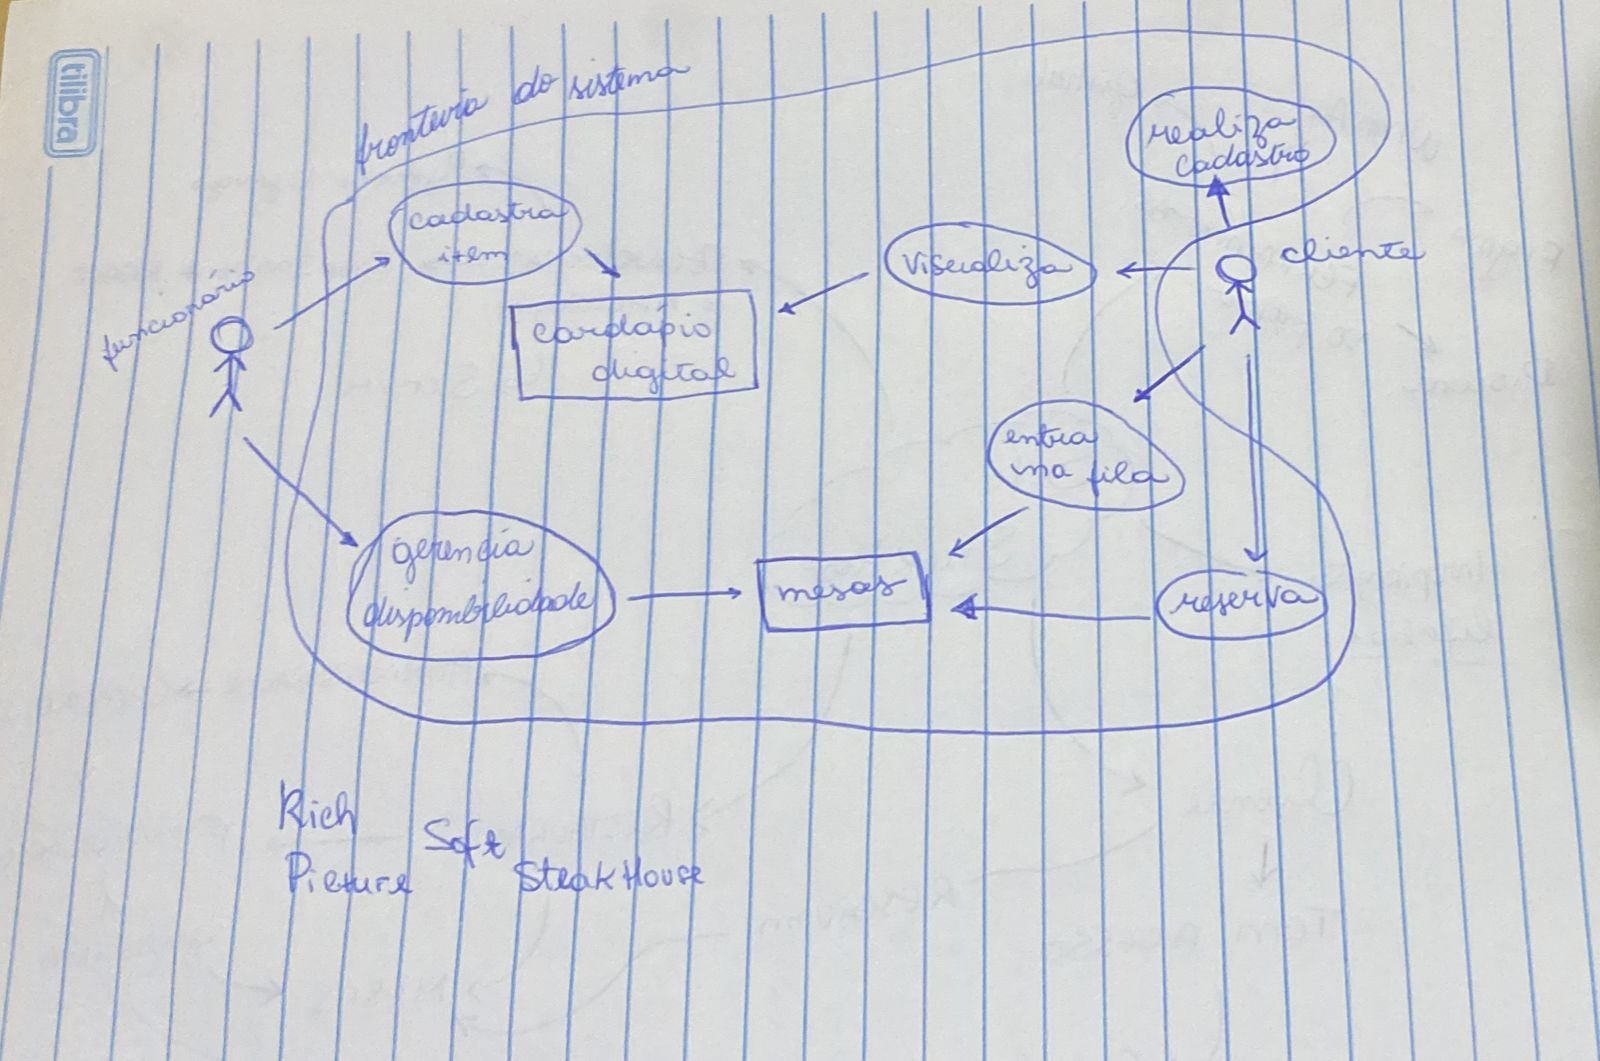 tilibra
fronteira do sistema
realiza
cadastro
cadastra
item
visualiza
cliente
funcionário
cardápio
digital
entra
na fila
gerencia
disponibilidade
mesas
reserva
Rich
Picture
Soft
SteakHouse